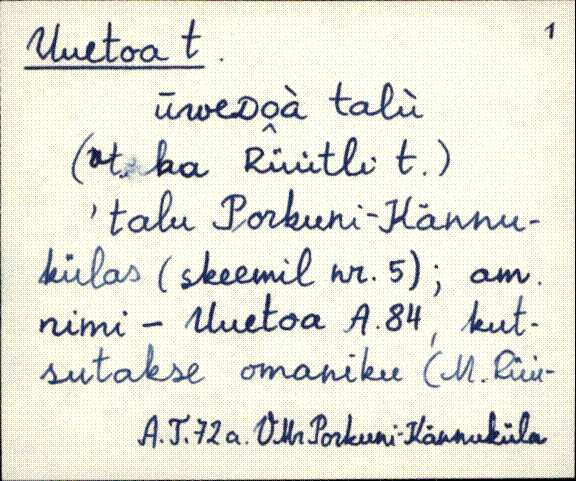 Uuetoa t.
1
ūwᴇᴅoà talù
(vt. ka Rüütli t.)
'talu Porkuni-Kännu-
külas (skeemil nr. 5); am.
nimi – Uuetoa A.84, kut-
sutakse omaniku (M. Rüü-
A.T.72a. VMr Porkuni-Kännuküla